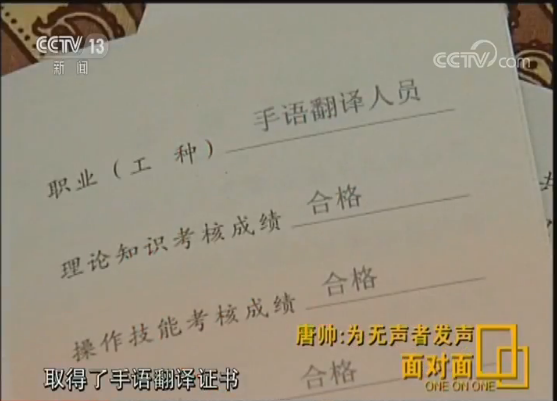 CCTV 13
新闻
CCTV.com
职业（工 种） 手语翻译人员
理论知识考核成绩 合格
操作技能考核成绩 合格
合格
唐帅:为无声者发声
面对面
ONE ON ONE
取得了手语翻译证书